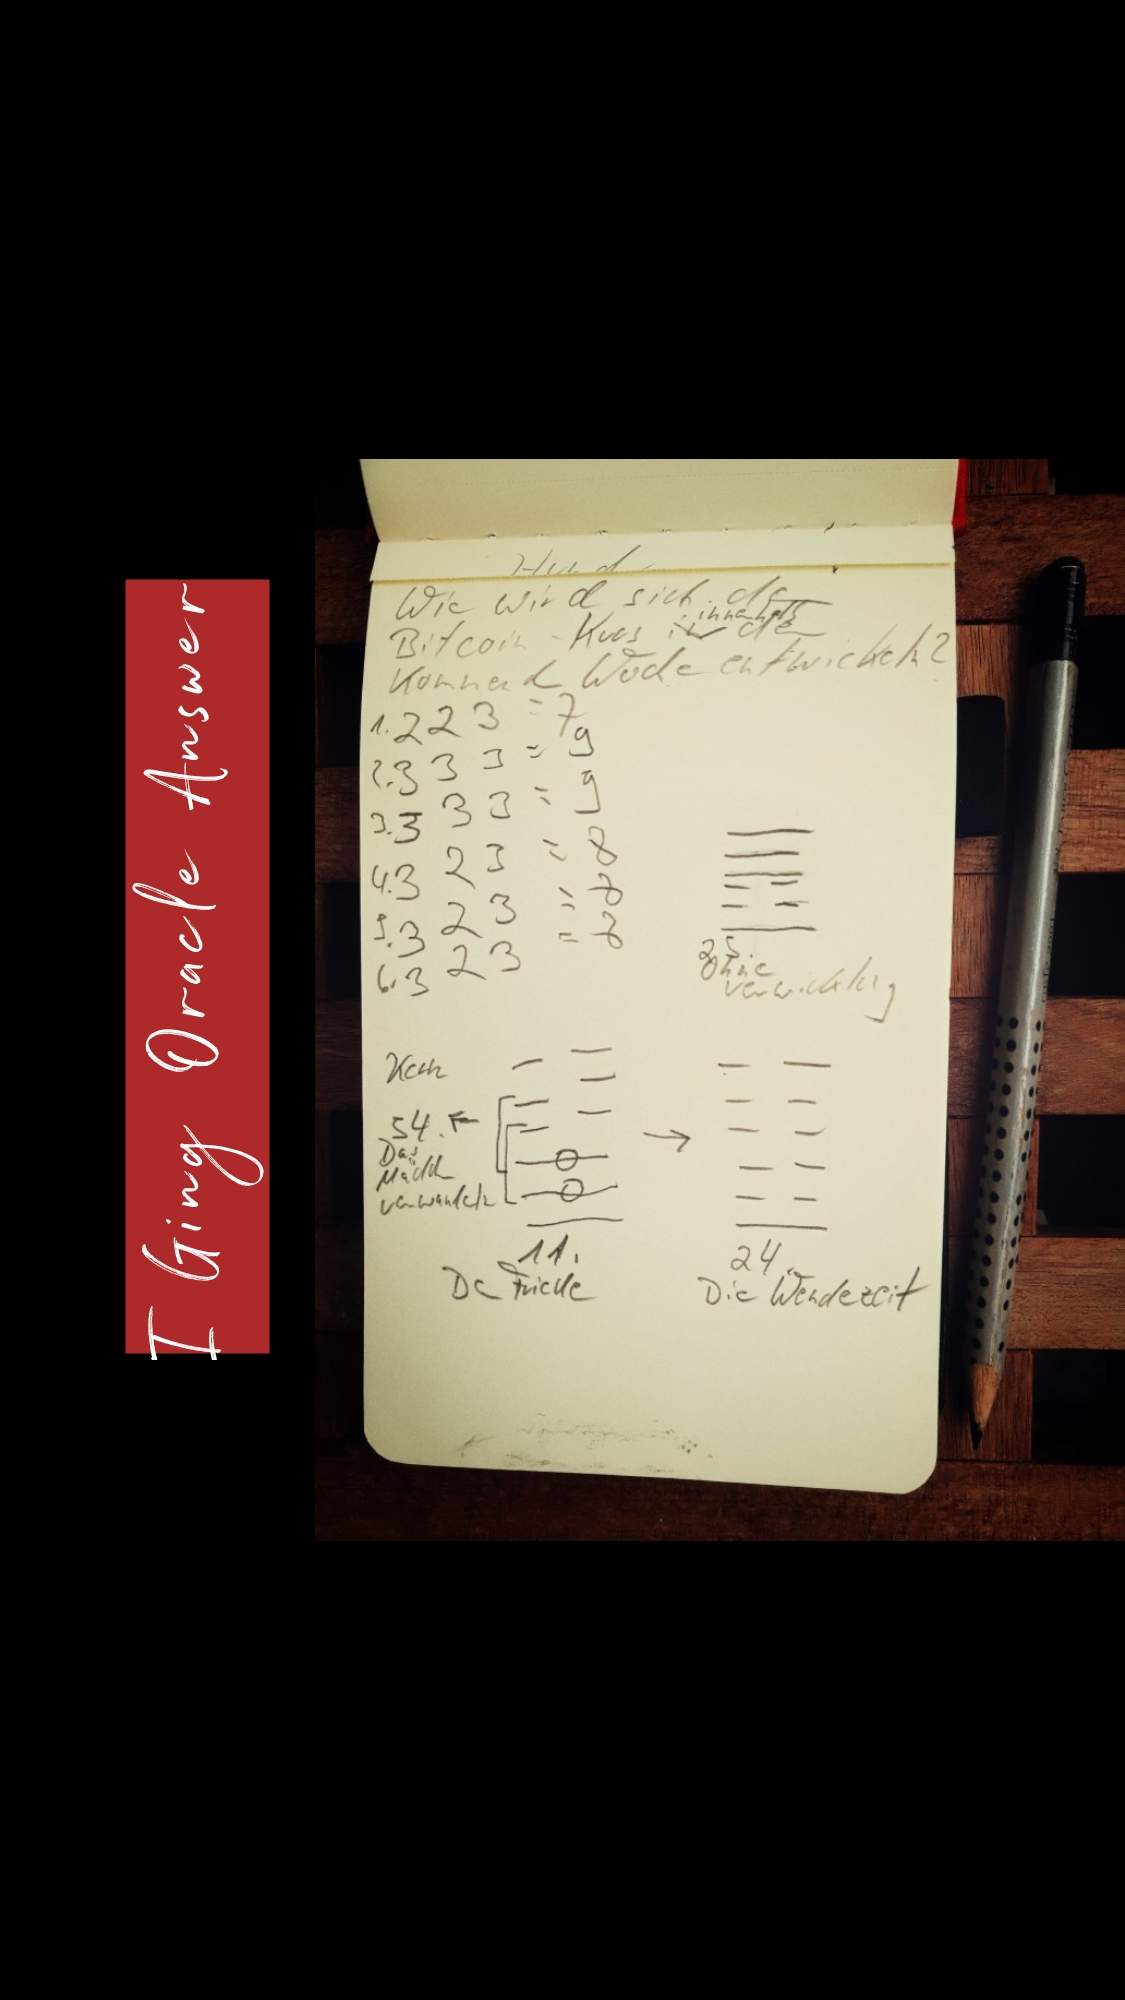 I Ging Oracle Answer
Hund
Wie wird sich der
innerhalb
Bitcoin-Kurs in der
Kommend Woche entwickeln?
1. 2 2 3 = 7
2. 3 3 3 = 9
3. 3 3 3 = 9
4. 3 2 3 = 8
5. 3 2 3 = 8
6. 3 2 3 = 8
25.
Ohne
verwicklung
Kern
54.
Das
Mädch
11.
Der Friede
24.
Die Wendezeit